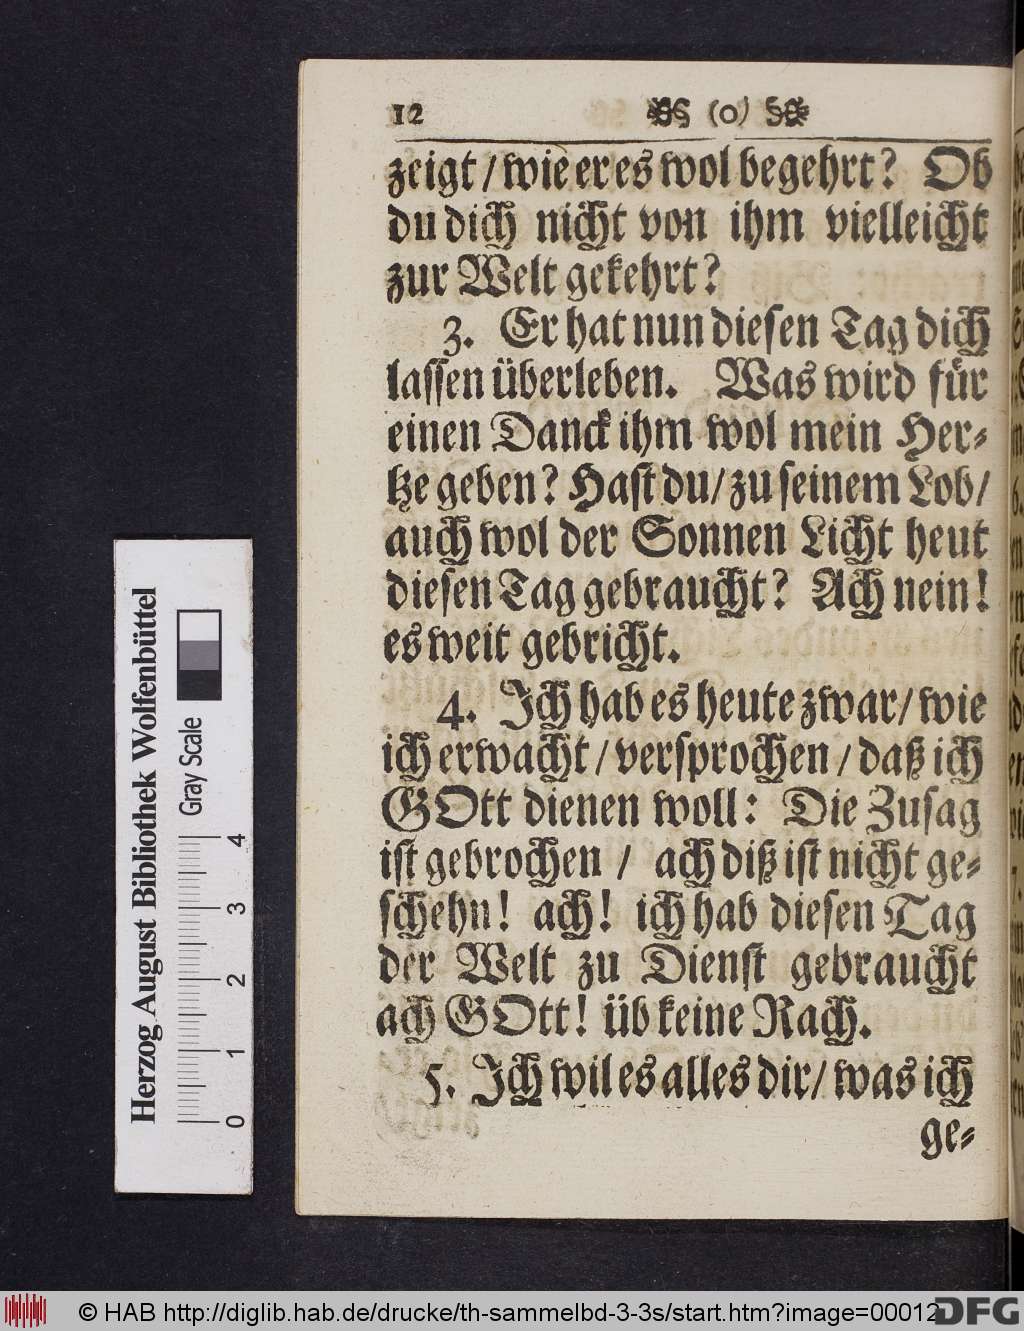 12 (o)
zeigt / wie er es wol begehrt? Ob
du dich nicht von ihm vielleicht
zur Welt gekehrt?
3. Er hat nun diesen Tag dich
lassen überleben. Was wird für
einen Danck ihm wol mein Her-
tze geben? Hast du / zu seinem Lob /
auch wol der Sonnen Licht heut
diesen Tag gebraucht? Ach nein!
es weit gebricht.
4. Ich hab es heute zwar / wie
ich erwacht / versprochen / daß ich
GOtt dienen woll: Die Zusag
ist gebrochen / ach diß ist nicht ge-
schehn! ach! ich hab diesen Tag
der Welt zu Dienst gebraucht
ach GOtt! üb keine Rach.
5. Ich wil es alles dir / was ich
ge-
Herzog August Bibliothek Wolfenbüttel
Gray Scale
0 1 2 3 4
© HAB http://diglib.hab.de/drucke/th-sammelbd-3-3s/start.htm?image=00012
DFG